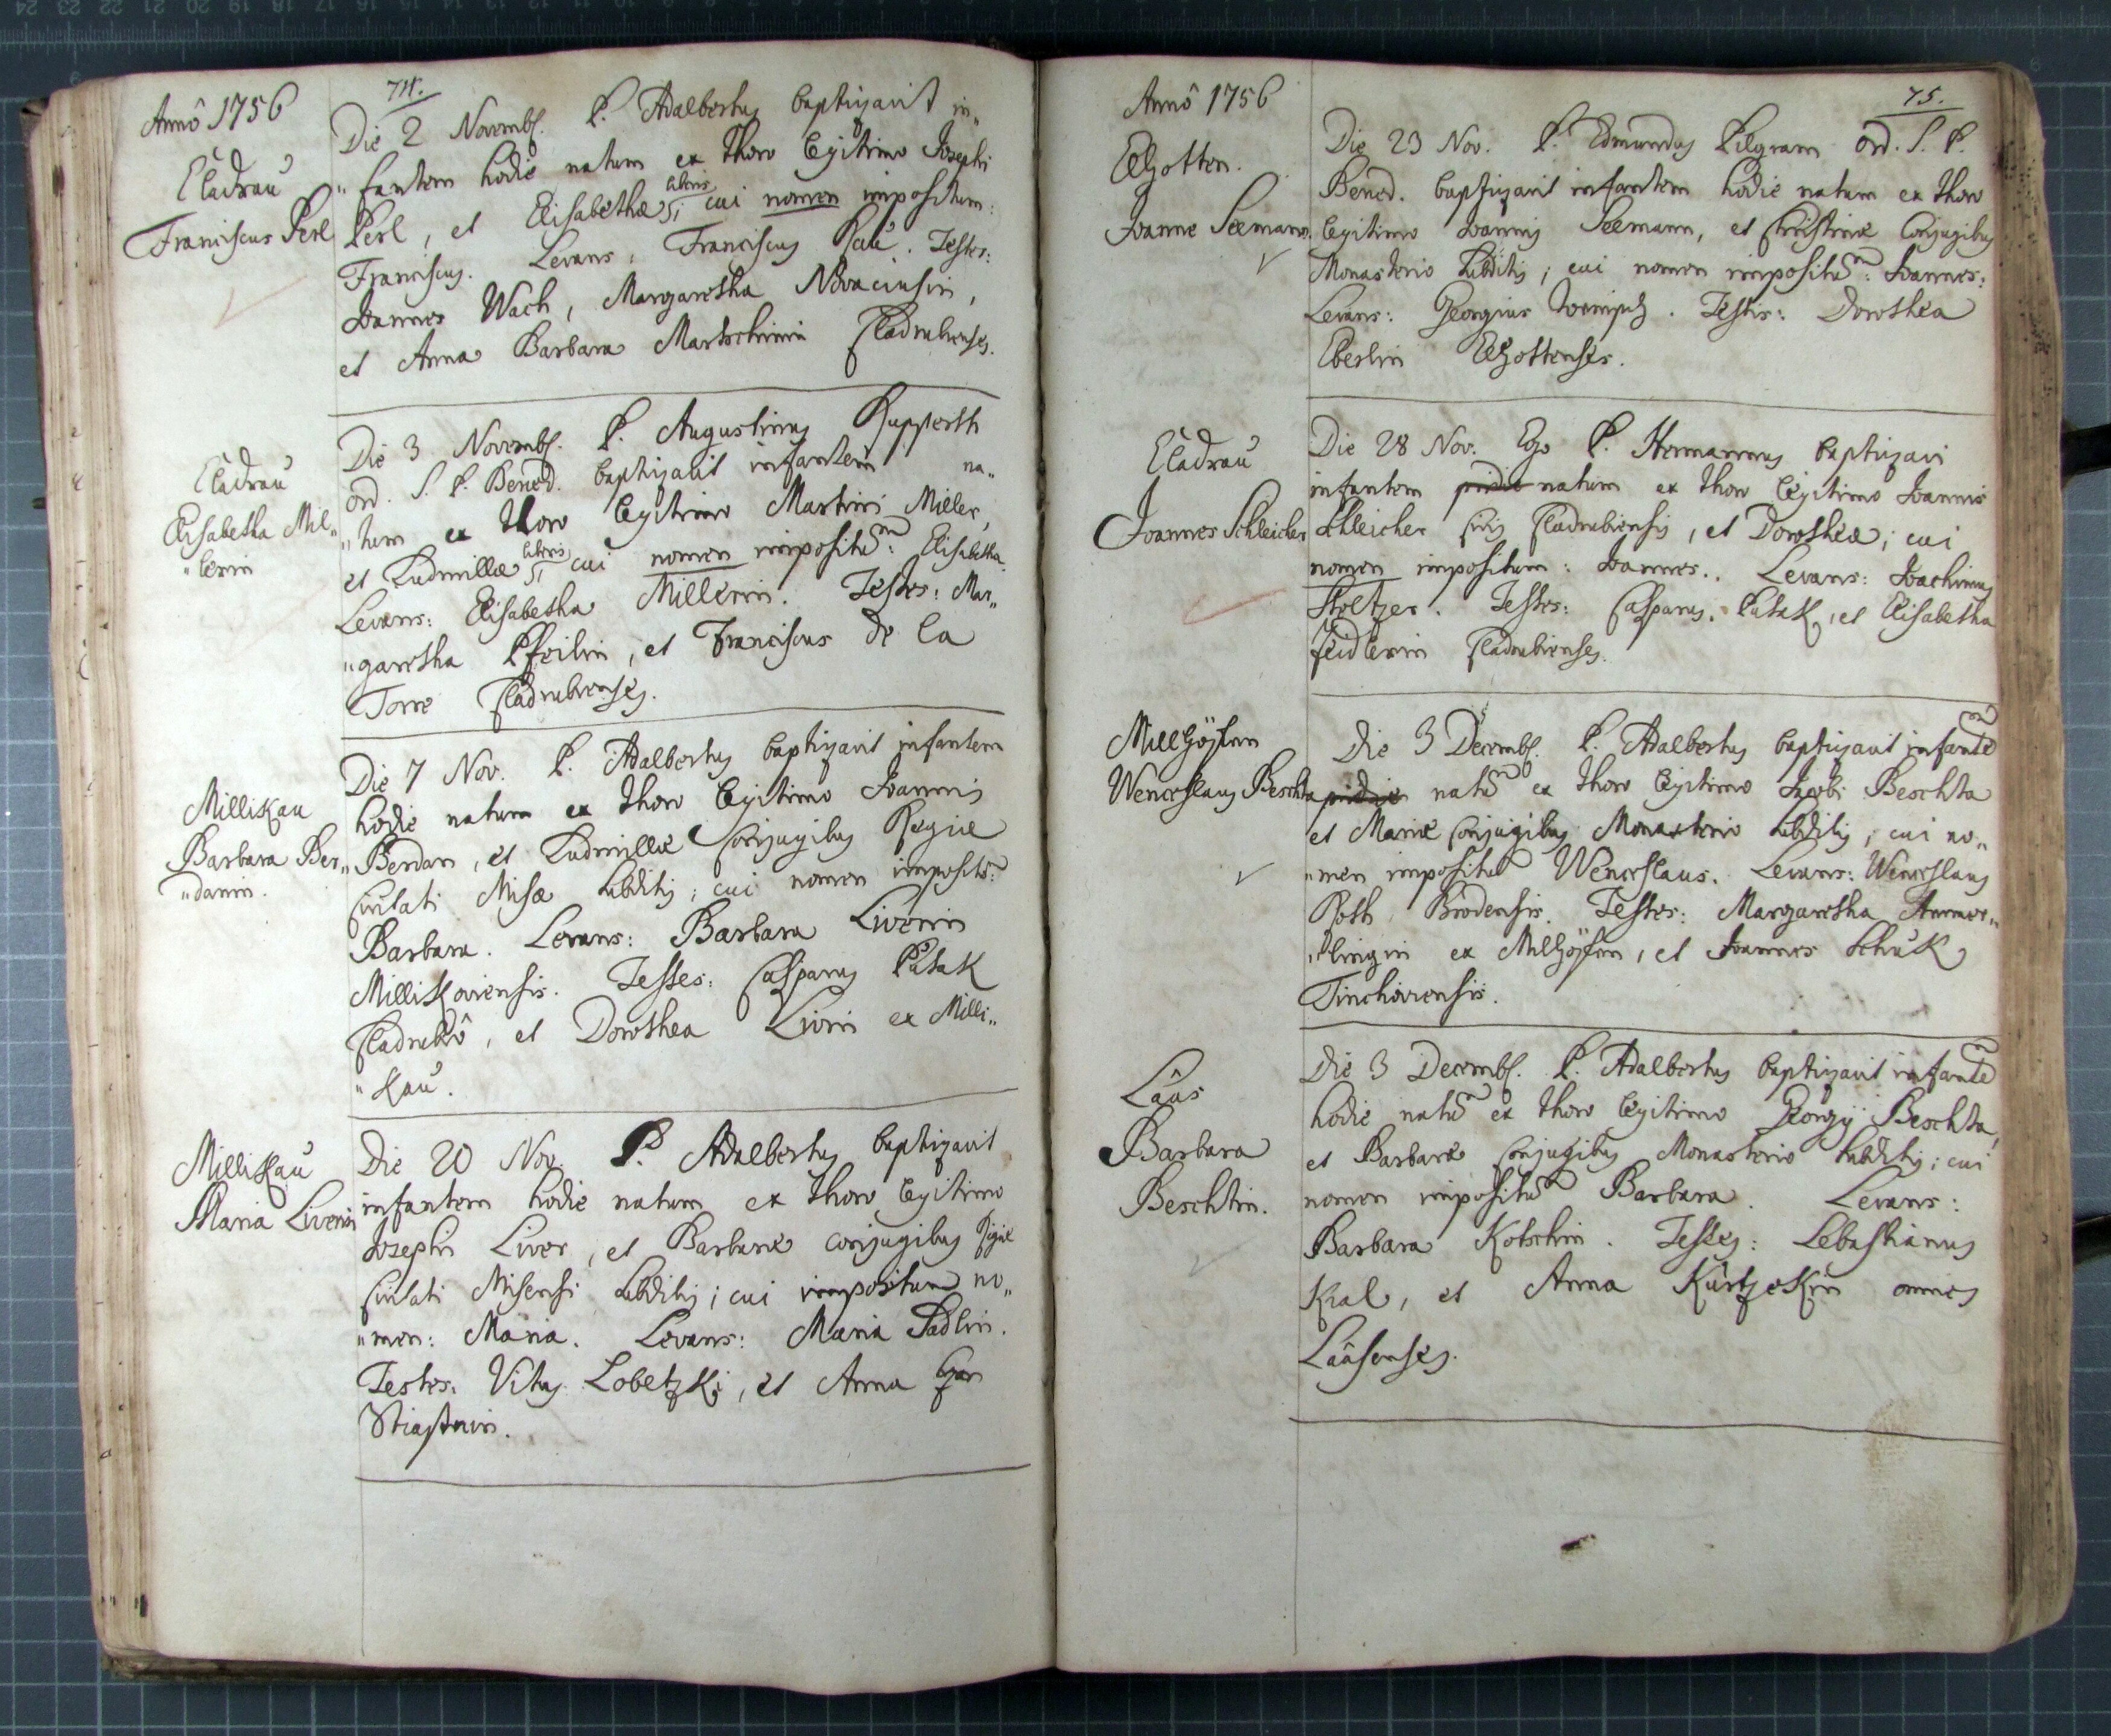 74.
Annô 1756
Cladrau
Franciscus Perl
Die 2 Novembr. P. Adalbertus baptizavit in„
„fantem hodie natum ex thoro legitimo Josephi
Perl, et Elisabethæ liberis cui nomen impositum:
Franciscus. Levans, Franciscus Rau. Testes:
Joannes Wach, Margaretha
et Anna Barbara Martschinin Cladrubienses.
Cladrau
Elisabetha Mil„
„lerin
Die 3 Novembr. P. Augustinus Rupperth
ord. S. P. Bened. baptizavit infantem na„
„tum ex thoro legitimo Martini Miller,
et Ludmillæ liberis cui nomen impositũ: Elisabetha.
Levans: Elisabetha Millerin. Testes: Mar„
„garetha Pfeilin, et Franciscus de la
Torre Cladrubienses.
Millikau
Barbara Ber„
„danin.
Die 7 Nov. P. Adalbertus baptizavit infantem
hodie natum ex thoro legitimo Joannis
Berdan, et Ludmillæ Conjugibus Regiæ
Civitati Misæ subditis; cui nomen impositũ:
Barbara. Levans: Barbara Liverin
Millikoviensis. Testes: Casparus Patak
Cladrubô, et Dorothea Livrin ex Milli„
„kau.
Millikau
Maria Liverin
Die 20 Nov. P. Adalbertus baptizavit
infantem hodie natum ex thoro legitimo
Josephi Liver, et Barbaræ conjugibus Rēgiæ
Civitati Misensi subditis; cui impositum no„
„men: Maria. Levans: Maria Sadlin.
Testes: Vitus Lobetzki, et Anna
Stiastnin.
75.
Annô 1756
Elhotten.
Joanne Seemann.
Die 23 Nov. P. Edmundus Pilgram ord. S. P.
Bened. baptizavit infantem hodie natum ex thoro
legitimo Joannis Seemann, et Christinæ Conjugibus
Monasterio subditis; cui nomen impositũ: Joannes:
Levans: Georgius. Testis: Dorothea
Eberlin Elhottenses.
Cladrau
Joannes Schleicher
Die 28 Nov. Ego P. Hermannus baptizavi
infantem pridie natum ex thoro legitimo Joannis
Schleicher Civis Cladrubiensis, et Dorotheæ; cui
nomen impositum: Joannes. Levans: Joachimus
Stoltzer. Testes: Casparus Patak, et Elisabetha
Feidlerin Cladrubienses.
Millhöffen
Wenceslaus Beschta
Die 3 Decembr. P. Adalbertus baptizavit infantẽ
pridie natũ ex thoro legitimo Jacobi Beschta
et Mariæ conjugibus Monasterio subditis; cui no„
„men impositũ Wenceslaus. Levans: Wenceslaus
Roth Brodensis. Testes: Margaretha Ammer„
„lingin ex Milhöffen, et Joannes Schuk
Tinchoviensis.
Laas
Barbara
Beschtin.
Die 3 Decembr. P. Adalbertus baptizavit infantẽ
hodie natũ ex thoro legitimo Georgÿ Beschta,
et Barbaræ conjugibus Monasterio subditis; cui
nomen impositũ Barbara. Levans:
Barbara Kotschin. Testes: Sebastianus
Kral, et Anna Kurtzekin omnes
Laasenses.